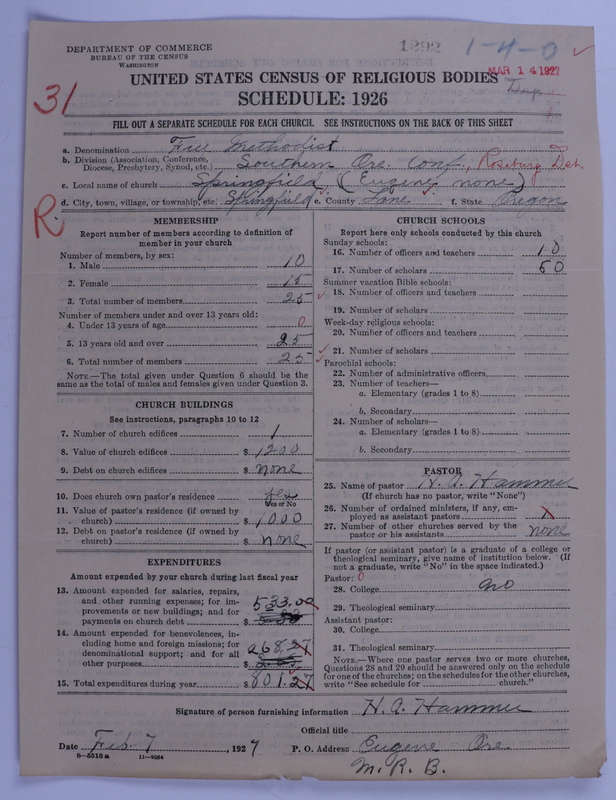 DEPARTMENT OF COMMERCE
BUREAU OF THE CENSUS
WASHINGTON
1292
1-4-0
MAR 14 1927
UNITED STATES CENSUS OF RELIGIOUS BODIES
SCHEDULE: 1926
31
FILL OUT A SEPARATE SCHEDULE FOR EACH CHURCH. SEE INSTRUCTIONS ON THE BACK OF THIS SHEET
a. Denomination Free Methodist
b. Division (Association, Conference, Diocese, Presbytery, Synod, etc.) Southern Ore. Conf., Roseburg Dist
c. Local name of church Springfield (Eugene none)
d. City, town, village, or township, etc. Springfield e. County Lane f. State Oregon
R
MEMBERSHIP
Report number of members according to definition of
member in your church
Number of members, by sex:
1. Male 10
2. Female 15
3. Total number of members 25
Number of members under and over 13 years old:
4. Under 13 years of age 0
5. 13 years old and over 25
6. Total number of members 25
NOTE.—The total given under Question 6 should be
same as the total of males and females given under Question 3.
CHURCH BUILDINGS
See instructions, paragraphs 10 to 12
7. Number of church edifices 1
8. Value of church edifices $ 1200
9. Debt on church edifices $ none
10. Does church own pastor's residence yes
Yes or No
11. Value of pastor's residence (if owned by
church) $ 1000
12. Debt on pastor's residence (if owned by
church) $ none
EXPENDITURES
Amount expended by your church during last fiscal year
13. Amount expended for salaries, repairs,
and other running expenses; for im-
provements or new buildings; and for
payments on church debt $ 533.00
14. Amount expended for benevolences, in-
cluding home and foreign missions; for
denominational support; and for all
other purposes $ 268.27
15. Total expenditures during year $ 801.27
CHURCH SCHOOLS
Report here only schools conducted by this church
Sunday schools:
16. Number of officers and teachers 10
17. Number of scholars 50
Summer vacation Bible schools:
18. Number of officers and teachers
19. Number of scholars
Week-day religious schools:
20. Number of officers and teachers
21. Number of scholars
Parochial schools:
22. Number of administrative officers
23. Number of teachers—
a. Elementary (grades 1 to 8)
b. Secondary
24. Number of scholars—
a. Elementary (grades 1 to 8)
b. Secondary
PASTOR
25. Name of pastor H. A. Hammer
(If church has no pastor, write "None")
26. Number of ordained ministers, if any, em-
ployed as assistant pastors x
27. Number of other churches served by the
pastor or his assistants none
If pastor (or assistant pastor) is a graduate of a college or
theological seminary, give name of institution below. (If
not a graduate, write "No" in the space indicated.)
Pastor: 0
28. College no
29. Theological seminary
Assistant pastor:
30. College
31. Theological seminary
NOTE.—Where one pastor serves two or more churches,
Questions 28 and 29 should be answered only on the schedule
for one of the churches; on the schedules for the other churches,
write "See schedule for church."
Signature of person furnishing information H. A. Hammer
Official title
Date Feb 7, 1927 P. O. Address Eugene Ore.
8-5518a 11-9054
M. R. B.